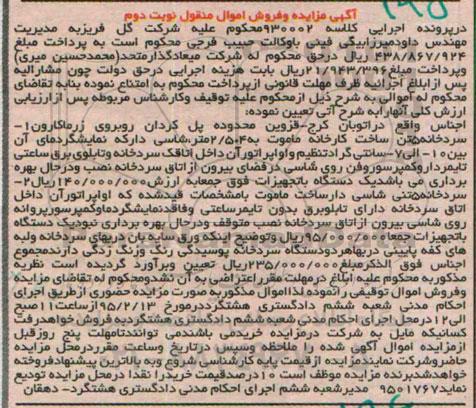 ۱۹۵
آگهی مزایده وفروش اموال منقول نوبت دوم
درپرونده اجرایی کلاسه ۹۳۰۰۰۲محکوم علیه شرکت گل فریزبه مدیریت
مهندس داودمیرزابیگی فینی باوکالت حبیب فرجی محکوم است به پرداخت مبلغ
۴۳۸/۸۶۷/۹۲۴ ریال درحق محکوم له شرکت میعادگذارمتحد(محمدحسین میری)
وپرداخت مبلغ۲۱/۹۴۳/۳۹۶ریال بابت هزینه اجرایی درحق دولت چون مشارالیه
پس ازابلاغ اجرائیه ظرف مهلت قانونی ازپرداخت محکوم به امتناع نموده بنابه تقاضای
محکوم له اموالی به شرح ذیل ازمحکوم علیه توقیف وکارشناس مربوطه پس ازارزیابی
ارزش کلی آنهارابه شرح آتی تعیین نموده:
اجناس واقع دراتوبان کرج-قزوین محدوده پل کردان روبروی زرماکارون۱-
سردخانه۵تن ساخت کارخانه ماموت به۲/۵۰۴متر،شاسی دارکه نمایشگردمای آن
بین۱۰- الی۷-سانتی گرادتنظیم واواپراتورآن داخل اتاقک سردخانه وتابلوی برق ساعتی
تایمرداروکمپرسوروفن روی شاسی درفضای بیرون ازاتاق سردخانه نصب ودرحال بهره
برداری می باشدیک دستگاه باتجهیزات فوق جمعابه ارزش ۱۴۰/۰۰۰/۰۰۰ریال۲-
سردخانه۵تنی شاسی دارساخت ماموت بامشخصات قیدشده که اواپراتورآن داخل
اتاق سردخانه دارای تابلوبرق بدون تایمرساعتی وفاقدنمایشگردماوکمپرسورپروانه
روی شاسی بیرون ازاتاق سردخانه نصب متوقف ودرحال بهره برداری نبودیک دستگاه
باتجهیزات جمعا۹۵/۰۰۰/۰۰۰ریال وتوضیح اینکه ورق سایه بان دربهای سردخانه ولبه
های کفه پایینی دربهاهردودستگاه سردخانه پوسیدگی رنگ وزنگ زدگی داردمجموع
اجناس فوق الذکربمبلغ۲۳۵/۰۰۰/۰۰۰ریال تعیین وبرآورد گردیده است نظریه
مذکوربه محکوم علیه ابلاغ درمهلت مقرراعتراضی به آن نشدومحکوم له تقاضای مزایده
وفروش اموال توقیفی رانموده لذااموال مذکوربه صورت مزایده حضوری ازطریق اجرای
احکام مدنی شعبه ششم دادگستری هشتگرددرمورخ ۹۵/۲/۱۳ ازساعت۱۱صبح
الی۱۲درمحل اجرای احکام مدنی شعبه ششم دادگستری هشتگردبه فروش خواهدرفت
کسانیکه مایل به شرکت درمزایده خریدمی باشندمی توانندتامهلت پنج روزقبل
ازمزایده اموال آگهی شده را ملاحظه وسپس درتاریخ وساعت مقرردرمحل مزایده
حاضروشرکت نمایندمزایده ازقیمت پایه کارشناسی شروع وبه بالاترین پیشنهادفروخته
خواهدشدبرنده مزایده موظف است ۱۰درصدقیمت خریدرا نقدا درمحل مزایده تودیع
نماید۹۵۰۱۷۶۷ مدیرشعبه ششم اجرای احکام مدنی دادگستری هشتگرد- دهقان